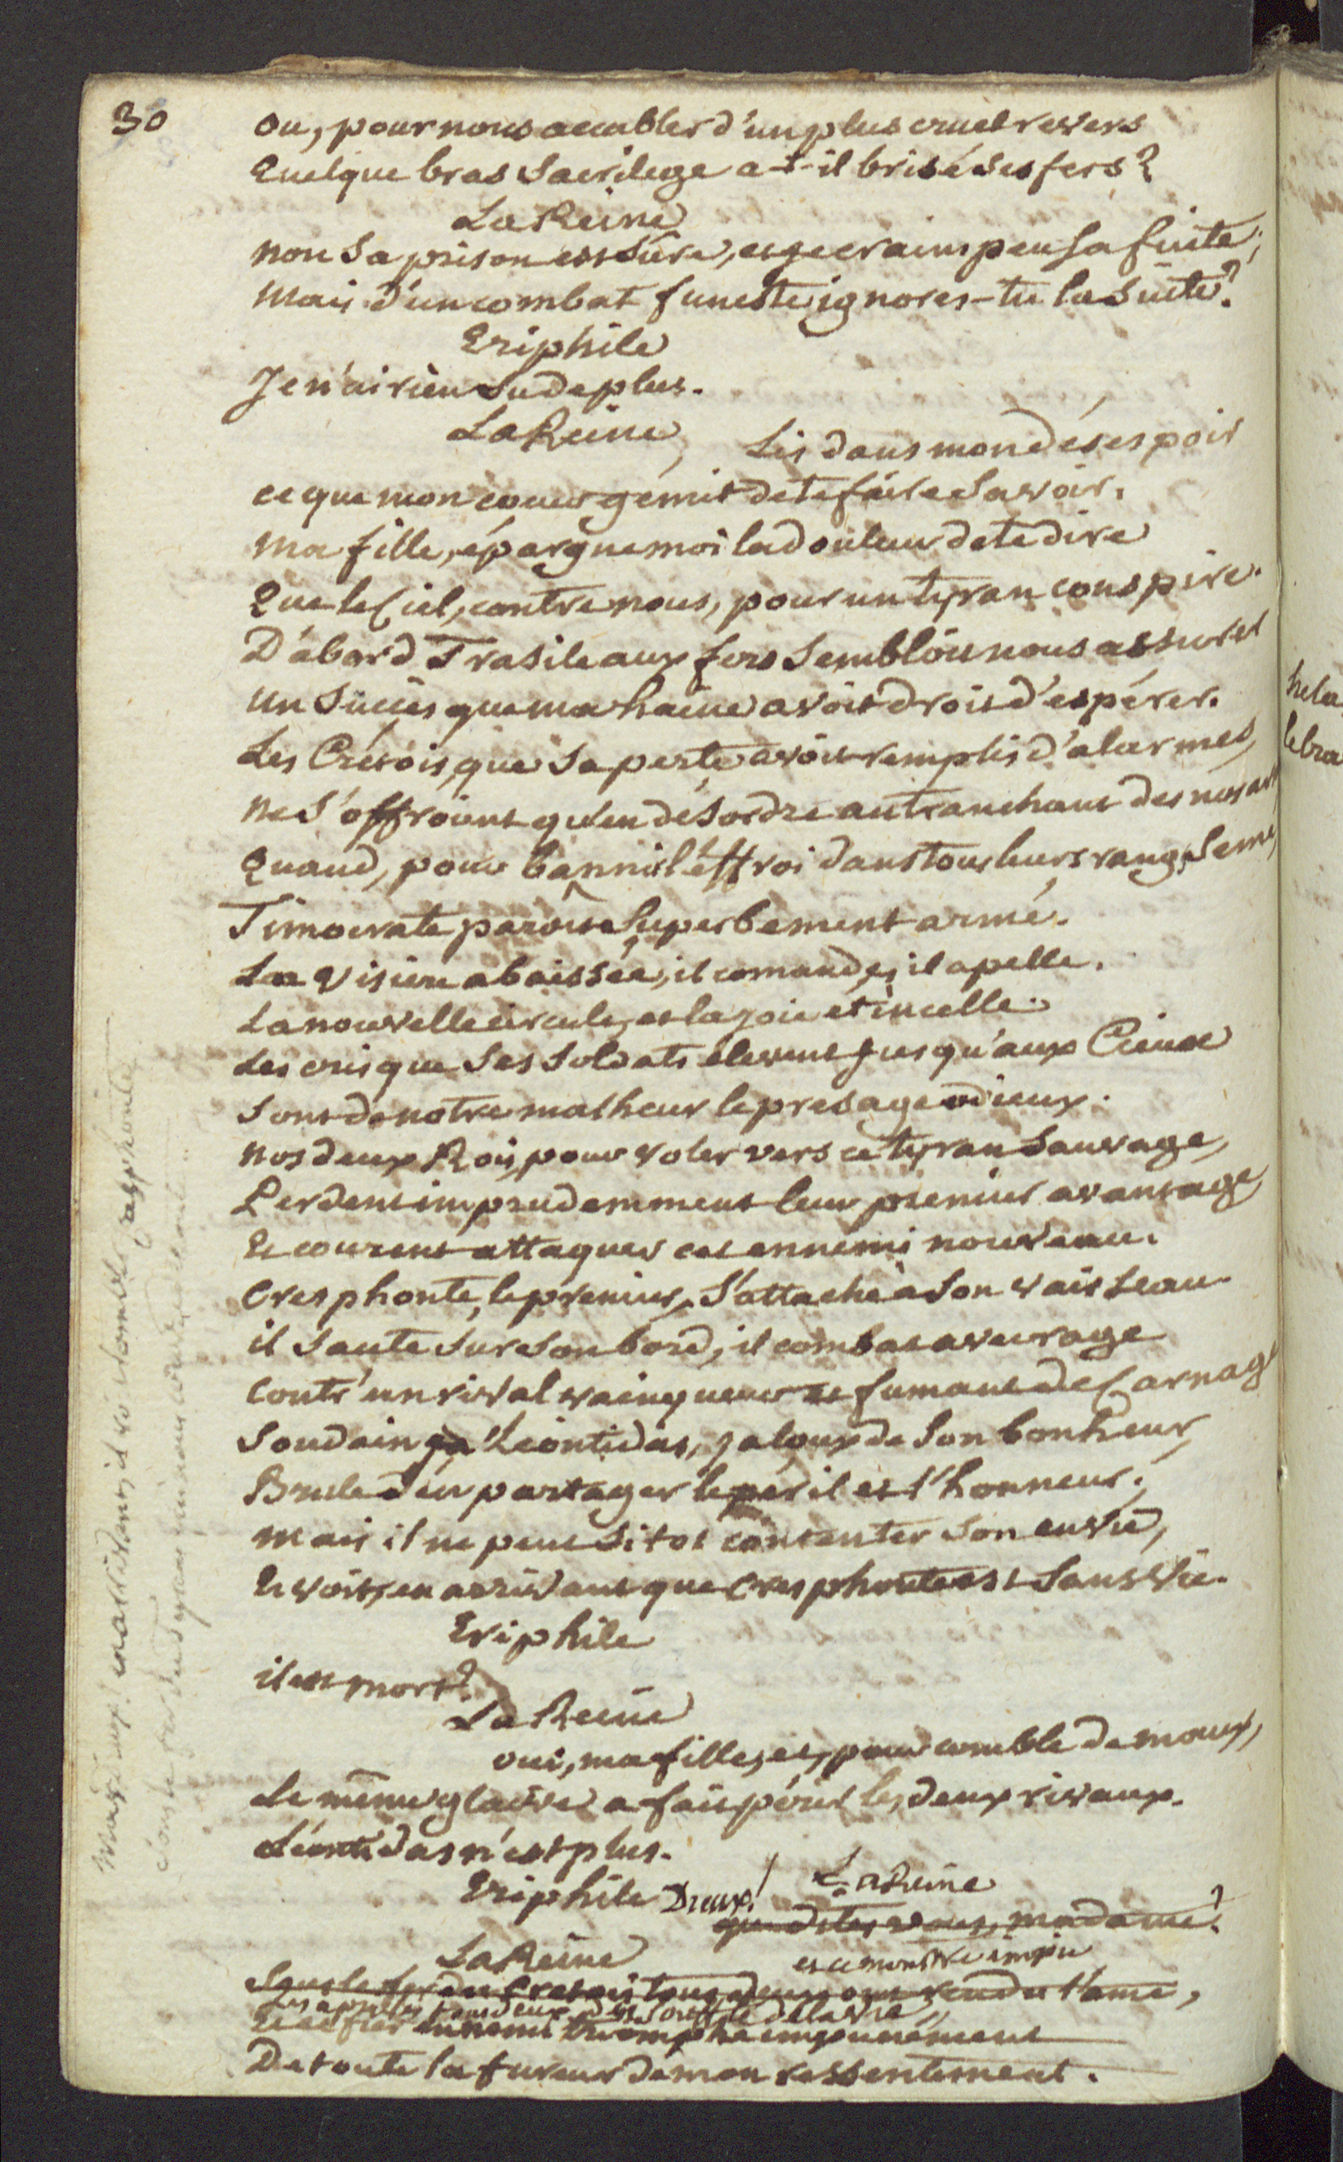 30
ou, pour nous accabler d'un plus cruel revers
Quelque bras Sacrilege a-t-il brisé ses fers?
La Reine
non Sa prison est Sûre, et je crains peu Sa fuite;
Mais d'un combat funeste ignores-tu la Suite?
Eriphile
Je n'ai rien Su de plus.
La Reine
Lis dans mon désespoir
ce que mon coeur gémit de te faire Savoir.
Ma fille, épargne moi la douleur de te dire
Que le Ciel, contre nous, pour un tyran conspire.
D'abord Trasile aux fers Sembloit nous assurer
un Succès que ma haine avoit droit d'espérer.
Les Crétois, que Sa perte avoit remplis d'alarmes,
Ne S'offroient qu'en désordre au tranchant de nos ar
Quand, pour bannir l'éffroi dans tous leurs rangs Semé,
Timocrate paroit Superbement armé.
La Visiere abaissée, il comande, il apelle.
La nouvelle circule, et la joie etincelle.
Les cris que Ses Soldats elevent jusqu'aux Cieux
Sont de notre malheur le presage odieux.
Nos deux Rois, pour voler vers ce tyran Sauvage,
Perdent imprudemment leur premier avantage,
Et courent attaquer cet ennemi nouveau.
Cresphonte, le premier, S'attache à Son vaisseau
il Saute Sur Son bord, il combat avec rage
Contr'un rival vainqueur et fumant de Carnage
Soudain Léontidas, jaloux de Son bonheur,
Brule d'en partager le péril et l'honneur.
Mais il ne peut Sitot contenter Son envie,
Et voit, en arrivant que Cresphonte est Sans vie.
Eriphile
il est mort?
La Reine
oui, ma fille, et, pour comble de maux,
Le même glaive a fait périr les deux rivaux.
Léontidas n'est plus.
Eriphile Dieux!
La Reine
que dites vous, madame?
La Reine
et ce monstre impie
Sous le fer du Cretois tous deux ont rendu l'ame,
Les a privés tous deux du Souffle de la vie,
Et ce fier ennemi triomphe impunément
De toute la fureur de mon ressentiment.
hela
le bra